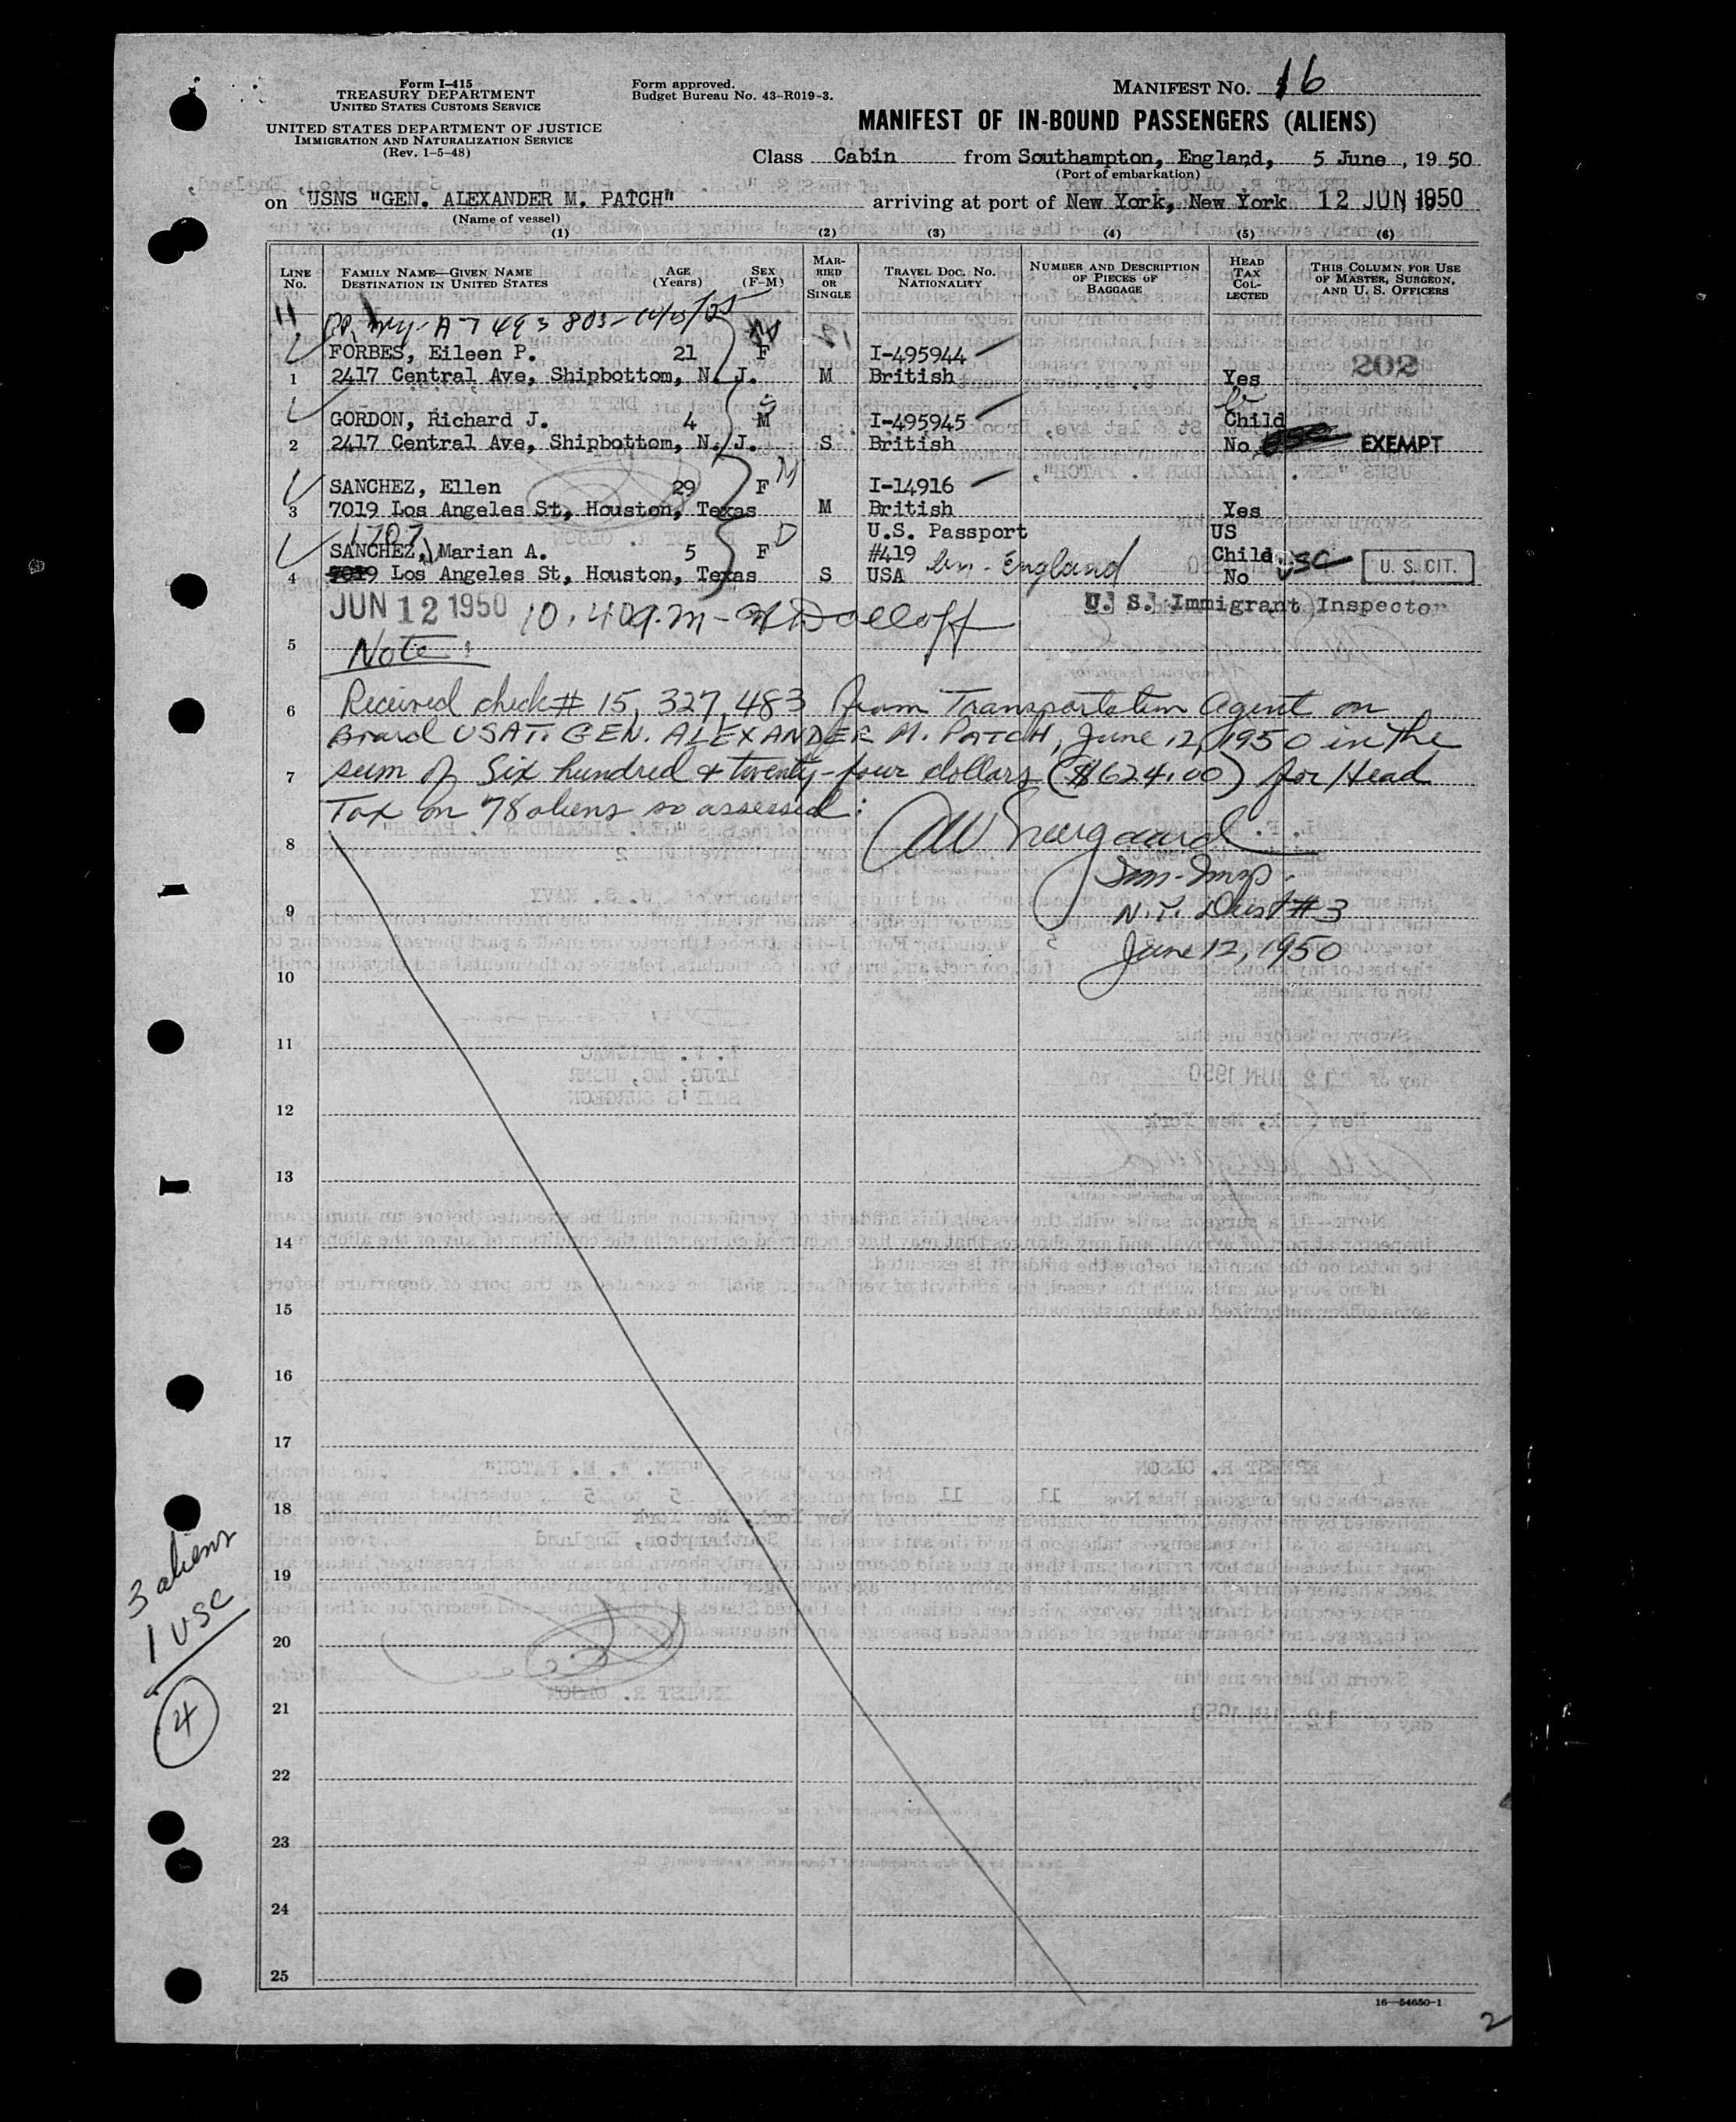 Form I-415
TREASURY DEPARTMENT
UNITED STATES CUSTOMS SERVICE
UNITED STATES DEPARTMENT OF JUSTICE
IMMIGRATION AND NATURALIZATION SERVICE
(Rev. 1-5-48)
Form approved.
Budget Bureau No. 43-R019-3.
MANIFEST NO. 16
MANIFEST OF IN-BOUND PASSENGERS (ALIENS)
Class Cabin from Southampton, England, 5 June, 1950
(Port of embarkation)
on USNS "GEN. ALEXANDER M. PATCH" arriving at port of New York, New York 12 JUN 1950
(Name of vessel)
(1) (2) (3) (4) (5) (6)
LINE No. FAMILY NAME—GIVEN NAME DESTINATION IN UNITED STATES AGE (Years) SEX (F-M) MARRIED OR SINGLE TRAVEL DOC. NO. NATIONALITY NUMBER AND DESCRIPTION OF PIECES OF BAGGAGE HEAD TAX COLLECTED THIS COLUMN FOR USE OF MASTER, SURGEON, AND U. S. OFFICERS
11 A7 493 803
FORBES, Eileen P. 21 F I-495944 202
1 2417 Central Ave, Shipbottom, N. J. M British Yes
GORDON, Richard J. 4 M I-495945 Child
2 2417 Central Ave, Shipbottom, N. J. S British No EXEMPT
SANCHEZ, Ellen 29 F M I-14916
3 7019 Los Angeles St, Houston, Texas M British Yes
1707 U.S. Passport US
SANCHEZ, Marian A. 5 F D #419 England Child USC U. S. CIT.
4 7019 Los Angeles St, Houston, Texas S USA No
JUN 12 1950 10.40 a.m - Dolloff U. S. Immigrant Inspector
5 Note:
6 Received check # 15,327,483 from Transportation Agent on
Board USAT. GEN. ALEXANDER M. PATCH, June 12, 1950 in the
7 sum of Six hundred & twenty-four dollars ($624.00) for Head
Tax on 78 aliens so assessed:
8
Imm. Insp.
9 N.Y. Dist #3
June 12, 1950
10
11
12
13
14
15
16
17
18
19
20
21
22
23
24
25
3 aliens
1 USC
4
16—54650-1
2